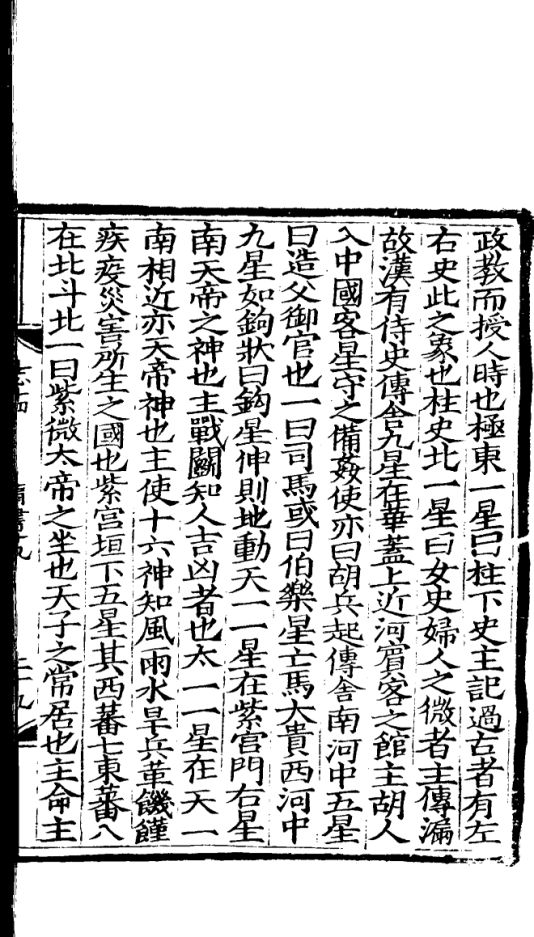 政教而授人時也極東一星曰柱下史主記過古者有左
右史此之象也柱史北一星曰女史婦人之微者主傳漏
故漢有侍史傳舍九星在華蓋上近河賓客之館主胡人
入中國客星守之備姦使亦曰胡兵起傳舍南河中五星
曰造父御官也一曰司馬或曰伯樂星亡馬大貴西河中
九星如鉤狀曰鈎星伸則地動天一一星在紫宫門右星
南天帝之神也主戰鬭知人吉凶者也太一一星在天一
南相近亦天帝神也主使十六神知風雨水旱兵革饑饉
疾疫災害所生之國也紫宫垣下五星其西蕃七東蕃八
在北斗北一曰紫微太帝之坐也天子之常居也主命主